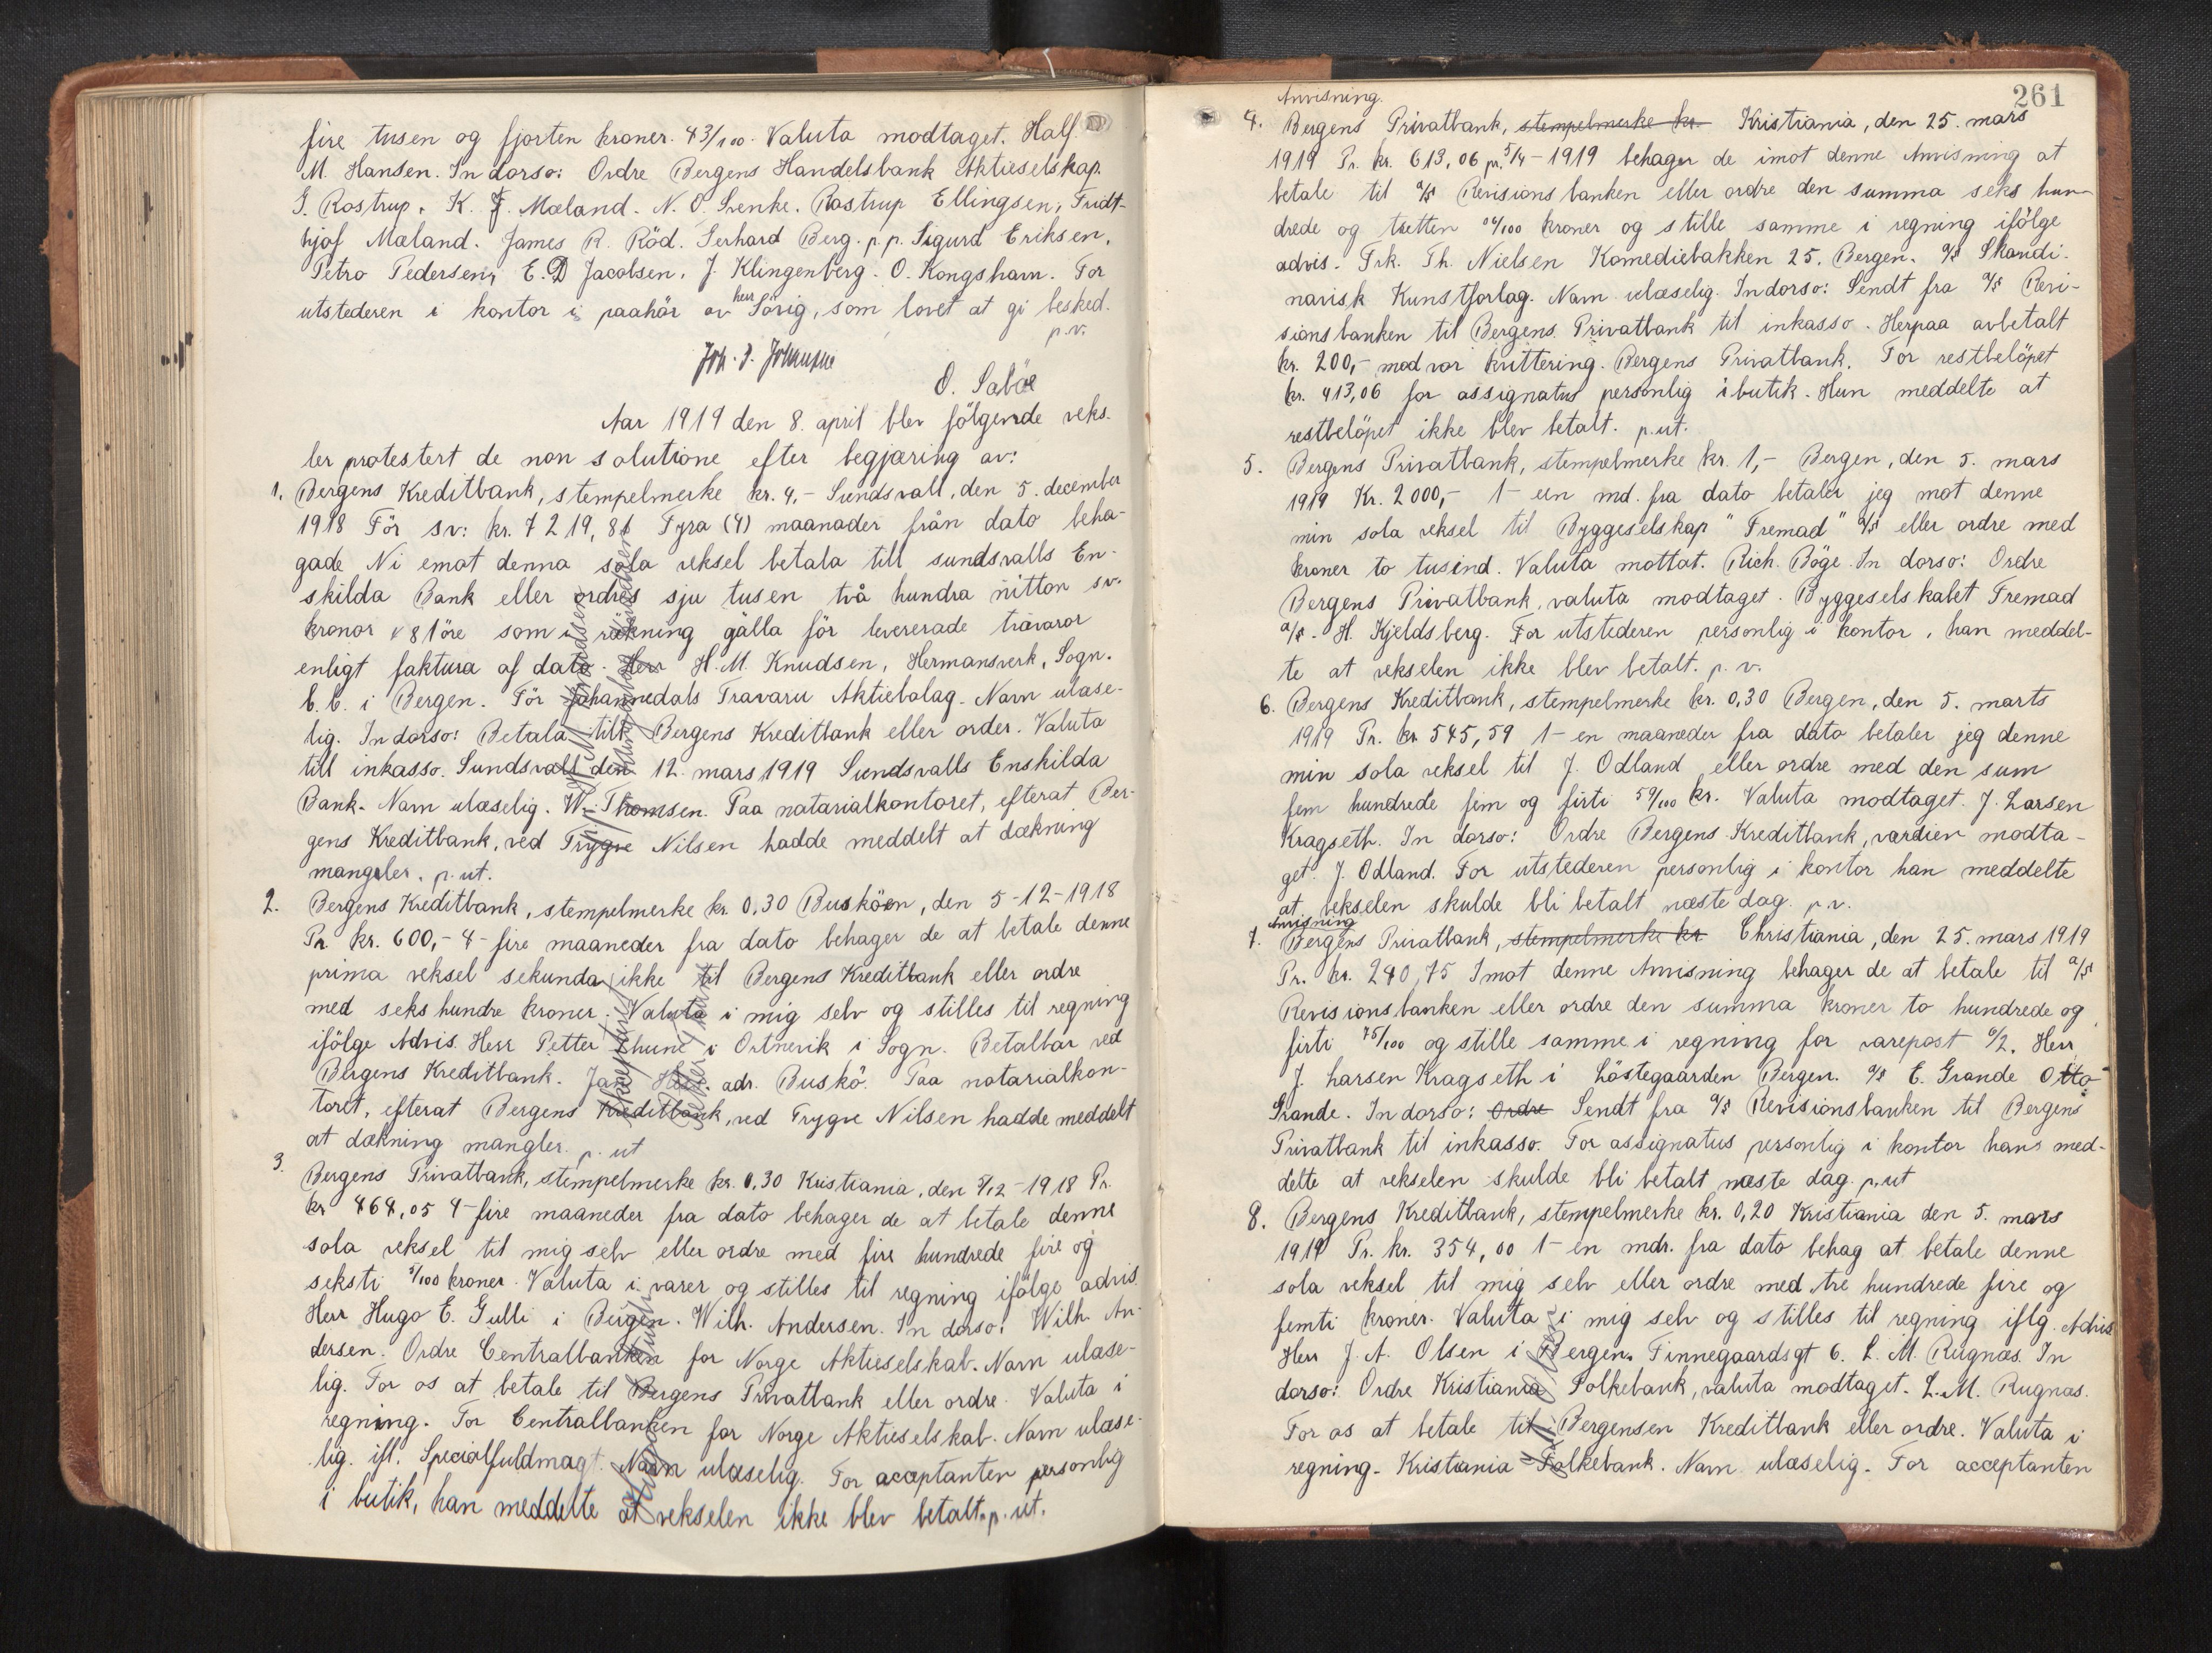 fire tusen og fjorten kroner. 43/100. Valuta modtaget. Half.
M. Hansen. In dorso: Ordre Bergens Handelsbank Aktieselskap.
G. Rastrup. K. F. Mæland. N. O. Svenke. Rastrup Ellingsen, Fridt-
hjof Mæland. James R. Röd. Gerhard Berg. p. p. Sigurd Eriksen.
Petro Pedersen, E. D Jacobsen. J. Klingenberg. O. Kongsham. For
utstederen i kontor i paahör av herr Sörig, som lovet at gi besked.
p.v.
O. Saböe
Aar 1919 den 8. april blev fölgende veks.
ler protestert de non solutione efter begjæring av:
1. Bergens Kreditbank, stempelmerke kr. 4,- Sundsvall, den 5. december
1918 För sv: kr. 7219,81 Fyra (4) maanader från dato beha-
gade Ni emot denna sola veksel betala till sundsvalls En-
skilda Bank eller ordres sju tusen två hundra nitton sv.
kronor v 81 öre som i räkning gälla för levererade travaror
enligt faktura af dato. Herr H. M. Knudsen, Hermansverk, Sogn.
b.b. i Bergen. För Johannedals Travaru Aktiebolag. Navn ulæse-
lig. In dorso: Betala till Bergens Kreditbank eller order. Valuta
till inkasso. Sundsvall den 12. mars 1919 Sundsvalls Enskilda
Bank. Navn ulæselig. W. Thomsen. Paa notarialkontoret, efterat Ber-
gens Kreditbank, ved Trygve Nilsen hadde meddelt at dækning
mangler. p. ut.
2. Bergens Kreditbank, stempelmerke kr. 0,30 Busköen, den 5-12-1918
Pr kr. 600,- 4- fire maaneder fra dato behager de at betale denne
prima veksel sekunda ikke til Bergens Kreditbank eller ordre
med seks hundre kroner. Valuta i mig selv og stilles til regning
ifölge Advis. Herr Petter Thune i Ortnevik i Sogn. Betalbar ved
Bergens Kreditbank. Jan adr. Buskö. Paa notarialkon-
toret, efterat Bergens Kreditbank, ved Trygve Nilsen hadde meddelt
at dækning mangler. p. ut
3. Bergens Privatbank, stempelmerke kr. 0,30 Kristiania, den 5/12-1918 Pr.
kr 464,05 4- fire maaneder fra dato behager de at betale denne
sola veksel til mig selv eller ordre med fire hundrede fire og
seksti 5/100 kroner. Valuta i varer og stilles til regning ifölge advis.
Herr Hugo E. Gulli i Bergen. Wilh. Andersen. In dorso: Wilh. An-
dersen. Ordre Centralbanken for Norge Aktieselskab. Navn ulæse-
lig. For os at betale til Bergens Privatbank eller ordre. Valuta i
regning. For Centralbanken for Norge Aktieselskab. Navn ulæse-
lig. ifl. Specialfuldmagt. Navn ulæselig. For acceptanten personlig
i butik, han meddelte at vekselen ikke blev betalt. p. ut.
261
Anvisning.
4. Bergens Privatbank, stempelmerke kr. Kristiania, den 25. mars
1919 Pr. kr. 613,06 pr. 5/4-1919 behager de imot denne Anvisning at
betale til a/s Revisionsbanken eller ordre den summa seks hun-
drede og tretten 06/100 kroner og stille samme i regning ifölge
advis. Frk. Th. Nielsen Komediebakken 25. Bergen. a/s Skandi-
navisk Kunstforlag. Navn ulæselig. Indorso: Sendt fra a/s Revi-
sionsbanken til Bergens Privatbank til inkasso. Herpaa avbetalt
kr. 200,- mod vor kvittering. Bergens Privatbank. For restbelöpet
kr. 413,06 for assignatus personlig i butik. Hun meddelte at
restbelöpet ikke blev betalt. p. ut.
5. Bergens Privatbank, stempelmerke kr. 1,- Bergen, den 5. mars
1919 Kr. 2000,- 1- een md. fra dato betaler jeg mot denne
min sola veksel til Byggeselskap "Fremad" a/s eller ordre med
kroner to tusind. Valuta mottat. Rich. Böge. In dorso: Ordre
Bergens Privatbank, valuta modtaget. Byggeselskabet Fremad
a/s. H. Kjeldsberg. For utstederen personlig i kontor, han meddel-
te at vekselen ikke blev betalt. p. v.
6. Bergens Kreditbank, stempelmerke kr. 0,30 Bergen, den 5. marts
1919 Pr. kr 545,59 1- en maaneder fra dato betaler jeg denne
min sola veksel til J. Odland eller ordre med den sum
fem hundrede fem og firti 59/100 kr. Valuta modtaget. J. Larsen
Kragseth. In dorso: Ordre Bergens Kreditbank, værdien modta-
get. J. Odland. For utstederen personlig i kontor han meddelte
at vekselen skulde bli betalt næste dag. p.v.
Anvisning
7. Bergens Privatbank, stempelmerke kr Christiania, den 25. mars 1919
Pr. kr. 240,75 Imot denne Anvisning behager de at betale til a/s
Revisionsbanken eller ordre den summa kroner to hundrede og
firti 75/100 og stille samme i regning for varepost 6/2. Herr
J. Larsen Kragseth i Löstegaarden Bergen. a/s E. Grande Otto
Grande. In dorso: Ordre Sendt fra a/s Revisionsbanken til Bergens
Privatbank til inkasso. For assignatus personlig i kontor hans med-
delte at vekselen skulde bli betalt næste dag. p. ut
8. Bergens Kreditbank, stempelmerke kr. 0,20 Kristiania den 5. mars
1919 Pr. kr. 354,00 1- en mdr. fra dato behag at betale denne
sola veksel til mig selv eller ordre med tre hundrede fire og
femti kroner. Valuta i mig selv og stilles til regning iflg. Advis
Herr J. A. Olsen i Bergen. Finnegaardsgt 6. L. M. Rugnæs. In
dorso: Ordre Kristiania Folkebank, valuta modtaget. L. M. Rugnæs.
For os at betale til Bergensen Kreditbank eller ordre. Valuta i
regning. Kristiania Folkebank. Navn ulæselig. For acceptanten